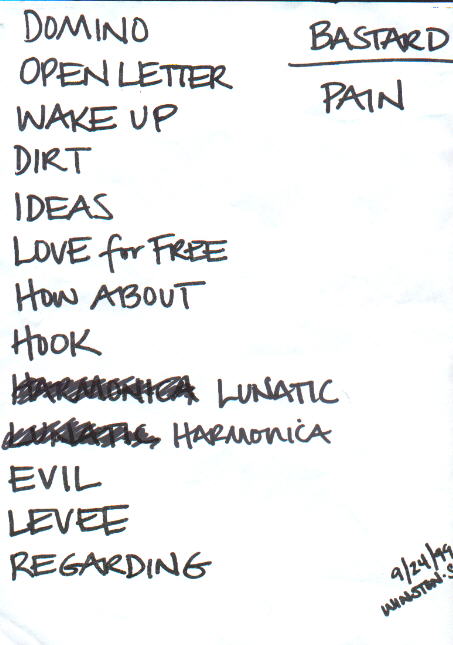 DOMINO
OPEN LETTER
WAKE UP
DIRT
IDEAS
LOVE for FREE
HOW ABOUT
HOOK
HARMONICA LUNATIC
LUNATIC HARMONICA
EVIL
LEVEE
REGARDING
BASTARD
PAIN
9/24/99
WINSTON'S